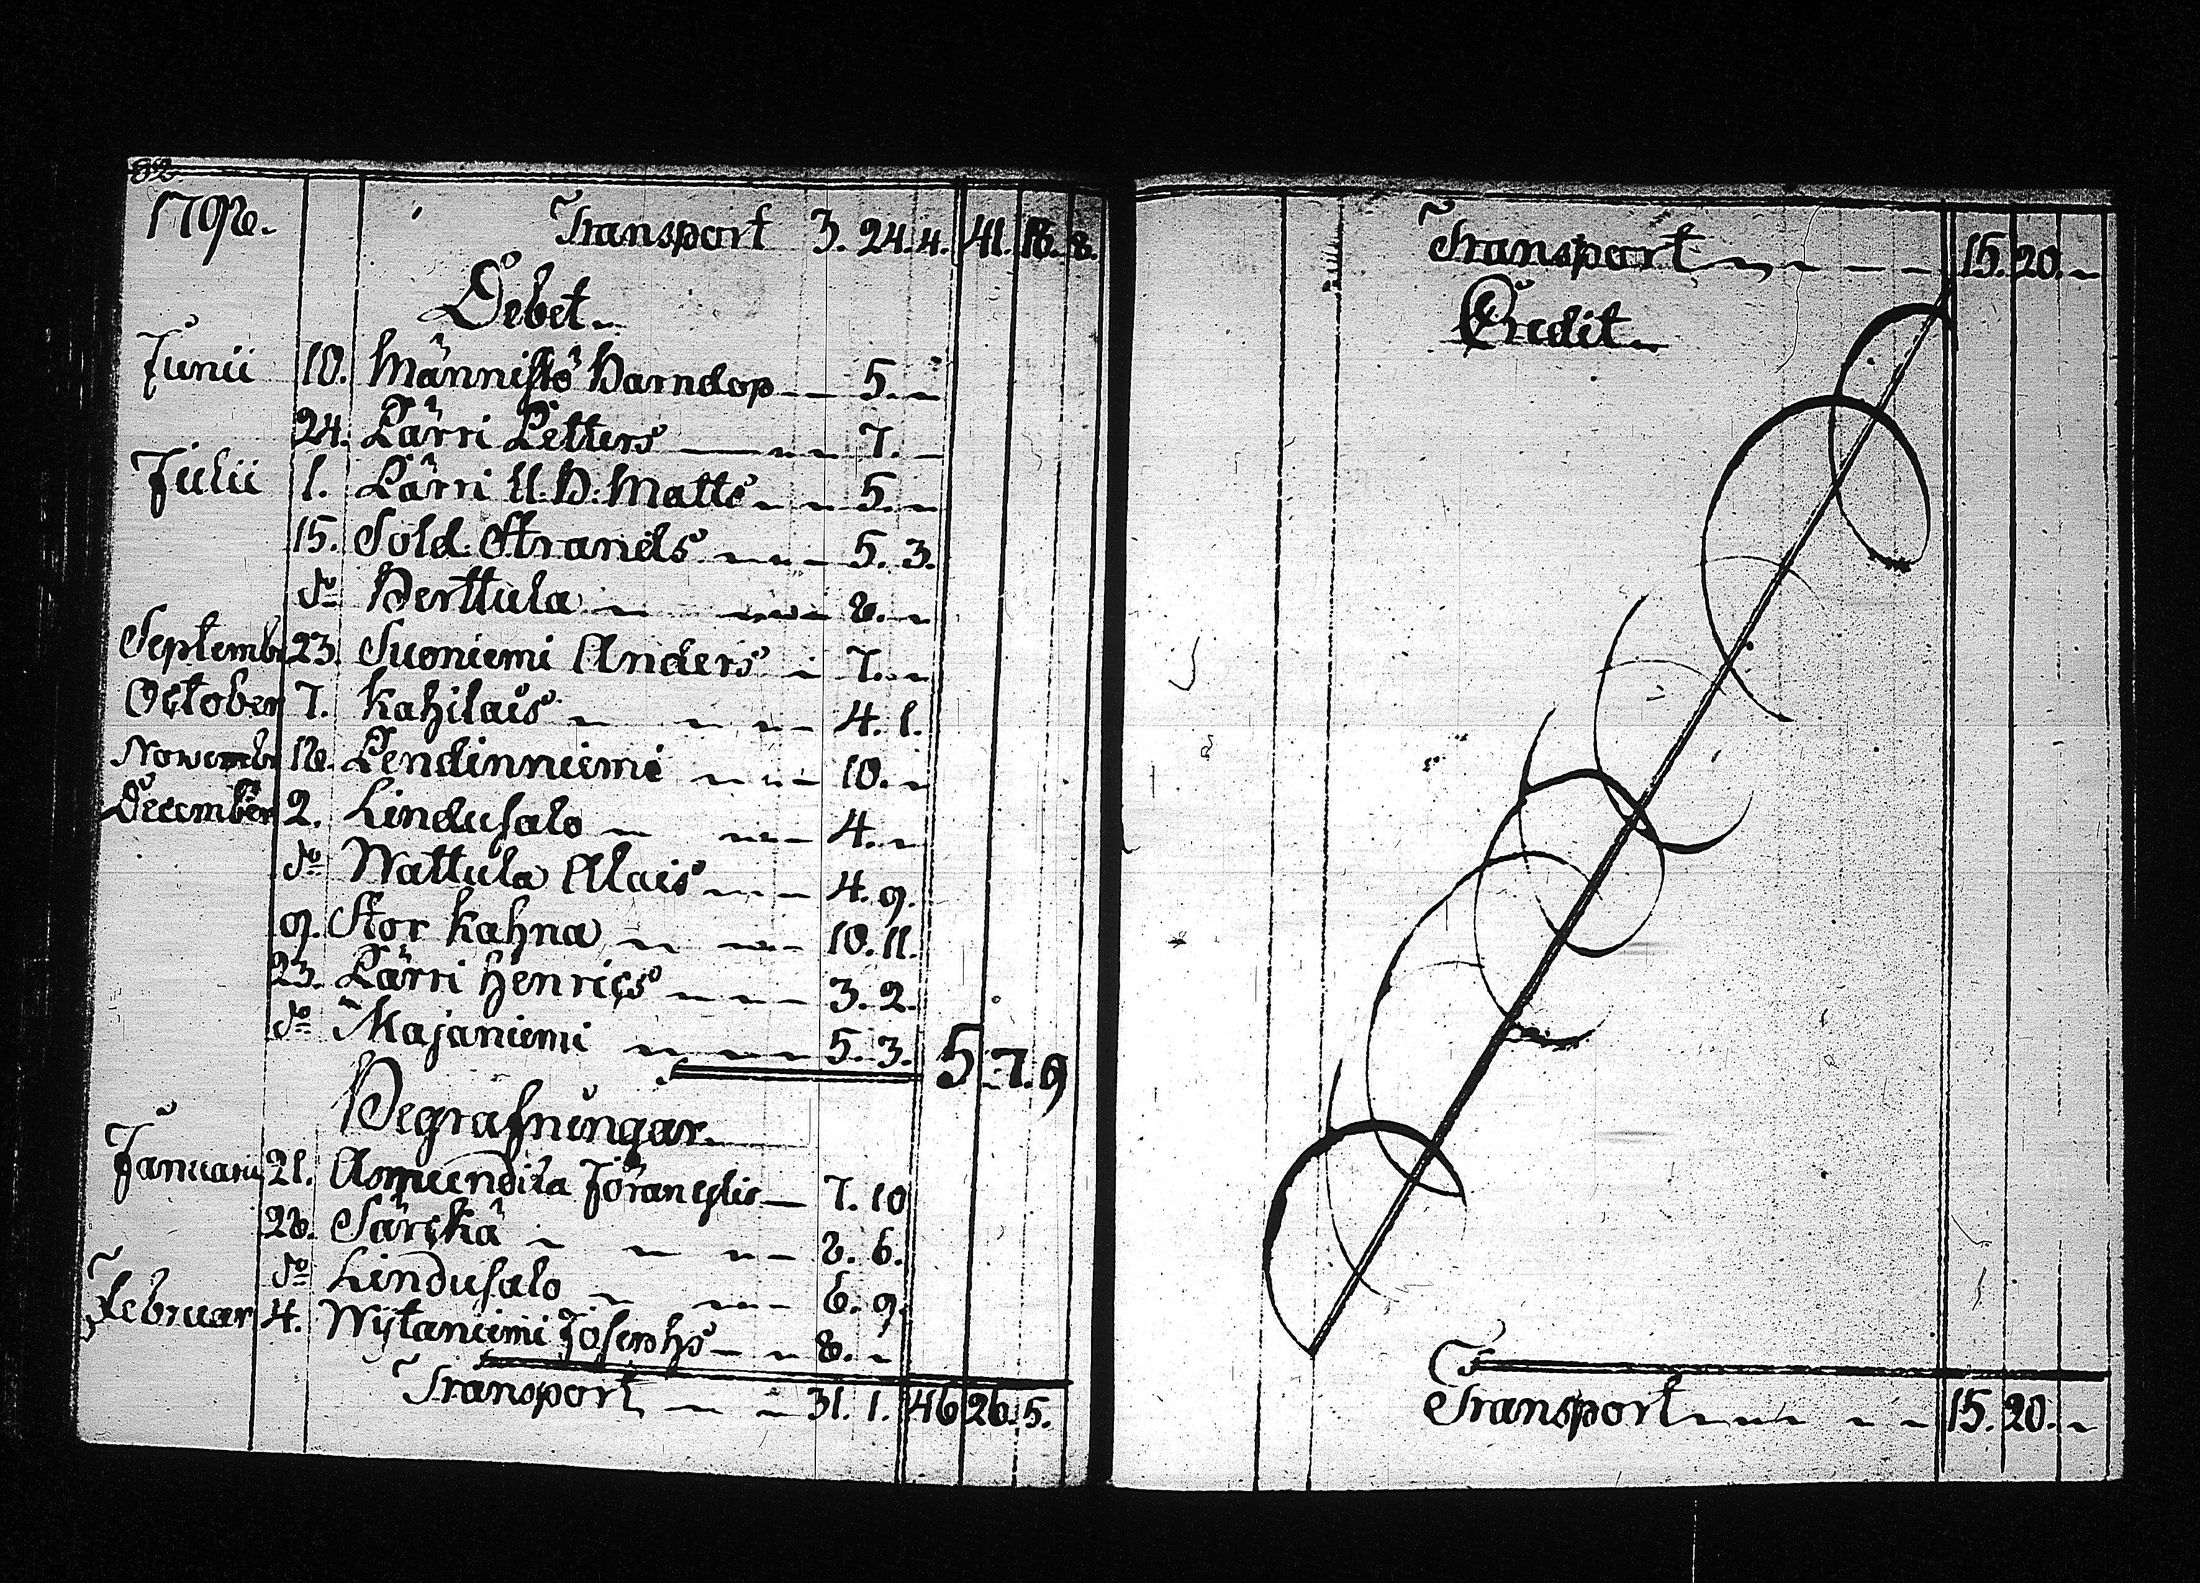 82.
1798. Transport 3. 24. 4. 41. 18. 8.
Debet.
Junii 10. Männistö Barndop 5.
24. Pärri Petters 7.
Julii 1. Pärri U. B: Matts 5.
15. Sold. Strands 5. 3.
do Berttula 8.
Septembr 23. Suoniemi Anders 7.
October 7. Kahilais 4. 1.
Novembr 18. Pendinniemi 10.
December 2. Lindusalo 4.
do Wattula Alais 4. 9.
9. Stor Kahna 10. 11.
23. Pärri Henrics 3. 2.
do Majaniemi 5. 3. 5. 7. 9
Begrafningar.
Januarii 21. Asmundila 7. 10
28. Särckä 8. 6.
do Lindusalo 6. 9.
Februar 4. Wijtaniemi Josephs 8.
Transport 31. 1. 46 26. 5.
Transport 15. 20.
Credit
Transport 15. 20.